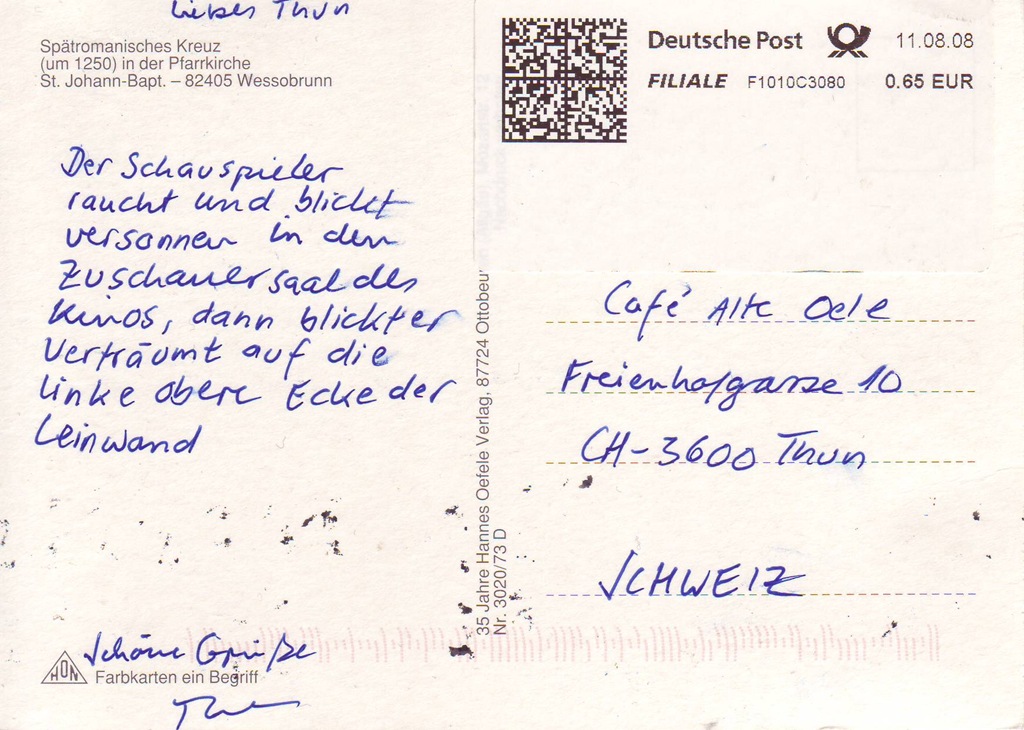 Liebes Thun
Spätromanisches Kreuz
(um 1250) in der Pfarrkirche
St. Johann-Bapt. – 82405 Wessobrunn
Der Schauspieler
raucht und blickt
versonnen in den
Zuschauersaal des
Kinos, dann blickt er
verträumt auf die
linke obere Ecke der
Leinwand
Schöne Grüße
HON Farbkarten ein Begriff
35 Jahre Hannes Oefele Verlag, 87724 Ottobeu
Nr. 3020/73 D
Deutsche Post 11.08.08
FILIALE F1010C3080 0.65 EUR
Café Alte Oele
Freienhofgasse 10
CH-3600 Thun
SCHWEIZ